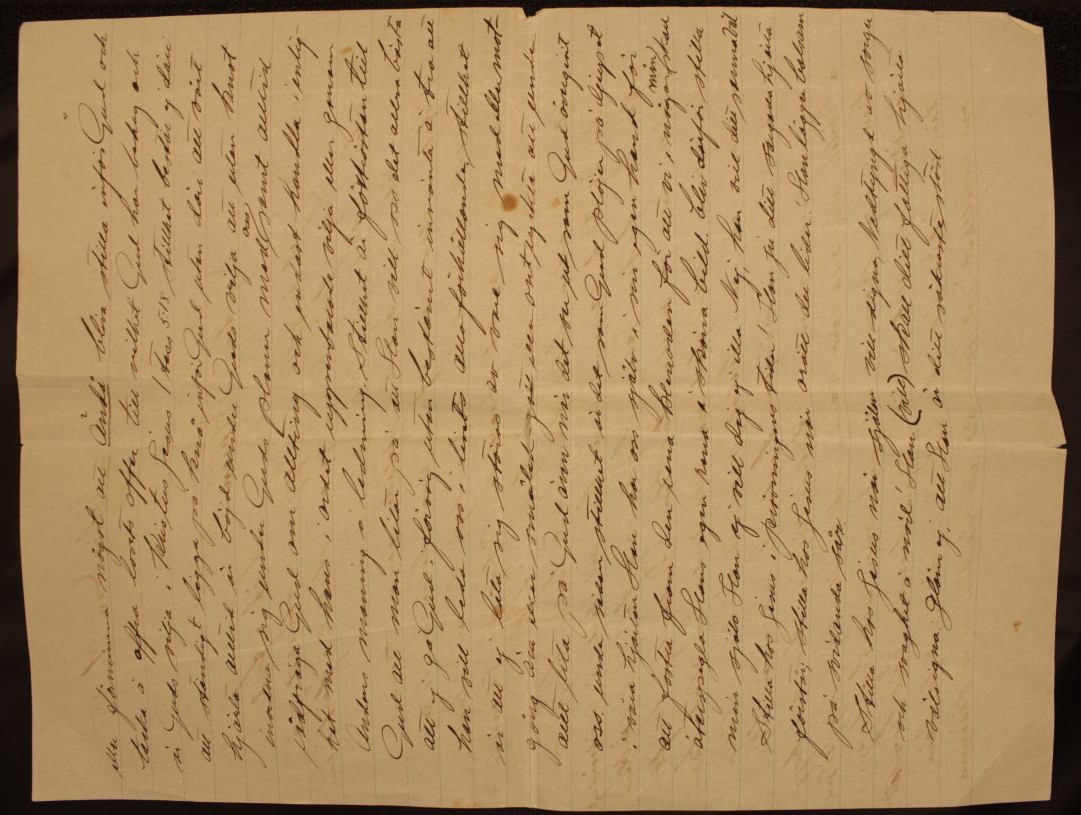 eller förnimma något att Ändå bliva stilla inför Gud och
tacka å offra lovets offer till vilket Gud har behag och
är Guds vilja i Kristus Jesus 1 Tess 5:18 stillhet består ej däri
att ständigt ligga på knä inför Gud utan däri att vårt
hjärta alltid är böjd under Guds vilja att utan knot
inordna sig under Guds planer med oss samt alltid
rådfråga Gud om allting och endast handla i enlig-
het med hans i ordet uppenbarade vilja eller genom
Andens maning å ledning. Stillhet är förtröstan till
Gud att man litar på att Han vill oss det allra bästa
att ej gå Gud i förväg utan bestämt invänta å tro att
han vill leda oss i livets alla förhållanden, stillhet
är att ej låta sig störas av vare sig med eller mot-
gång ära eller smälek gott eller ont rykte att ända
allt lita på Gud även när det ser ut som Gud övergivit
oss. under sådan stillhet är det som Gud plöjer på djupet
i våra hjärtan Han har oss själv i sin egen hand för
att fostra fram den rena klenoden för att vi i någon mån skall
återspegla Hans egen rena å sköna bild. bliv därför stilla
min själ Han ej vill dig ej illa Nej, han vill ditt sanna väl
Stilla hos Jesus i prövningens tider! Han ju ditt sargade hjärta
förstår; stilla hos Jesus när orätt du lider! Han lägger balsam
på svidande sår
Stilla hos Jesus när själen vill digna, Nedtyngd av sorger
och svaghet å nöd! Han (vill) skall ditt fattiga hjärta
välsigna. Glöm ej, att Han är ditt säkraste stöd